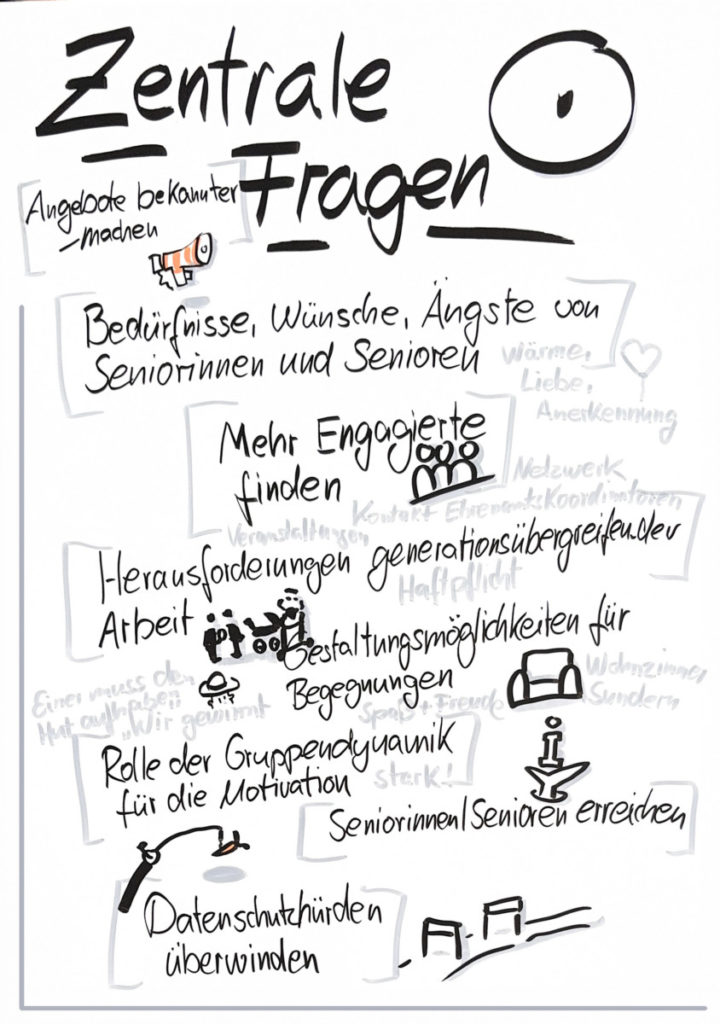 Zentrale
Fragen
Angebote bekannter
-machen
Bedürfnisse, Wünsche, Ängste von
Seniorinnen und Senioren
Wärme,
Liebe,
Anerkennung
Mehr Engagierte
finden
Netzwerk
Kontakt EhrenamtsKoordinatoren
Veranstaltungen
Herausforderungen generationsübergreifender
Arbeit
Haftpflicht
Gestaltungsmöglichkeiten für
Begegnungen
Wohnzimmer
Sundern
Spaß + Freude
Einer muss den
Hut aufhaben
"Wir gewinnt
Rolle der Gruppendynamik
für die Motivation
stark!
Seniorinnen/Senioren erreichen
Datenschutzhürden
überwinden